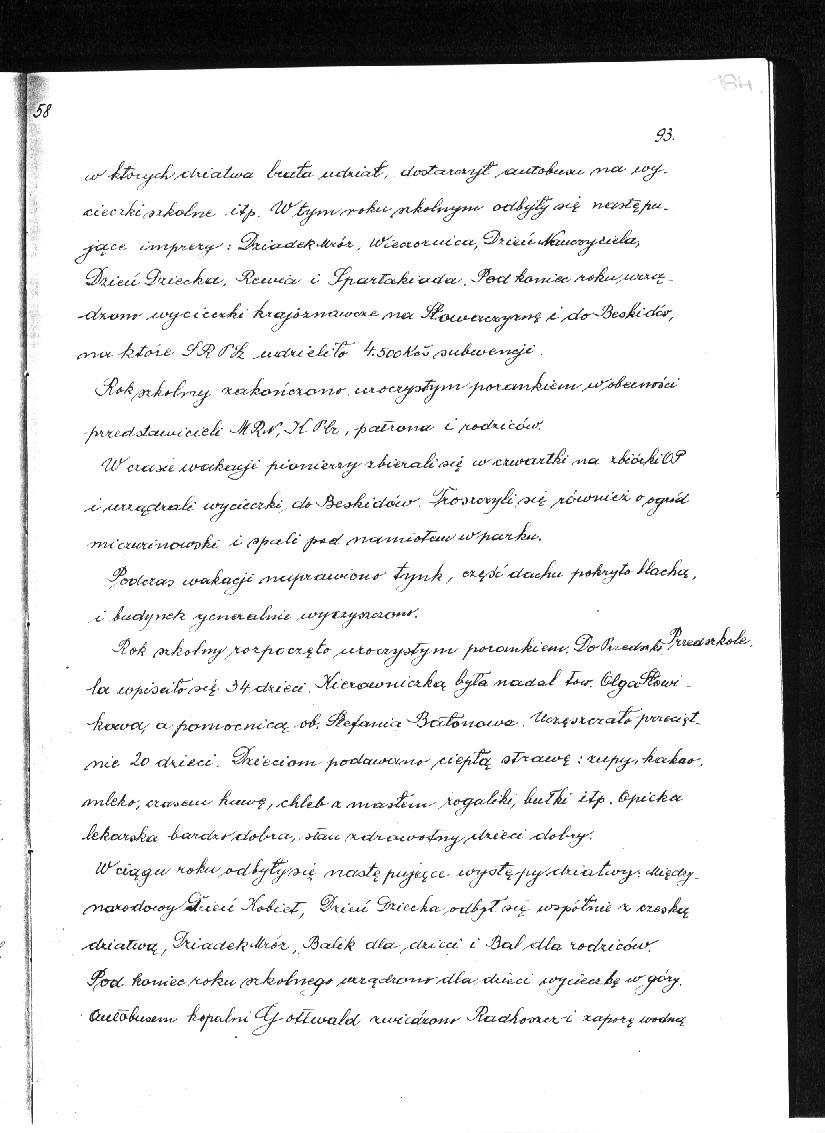 184.
58
93.
w których dziatwa brała udział, dostarczył autobusu na wy-
cieczki szkolne itp. W tym roku szkolnym odbyły się następu-
jące imprezy: Dziadek Mróz, Wieczornica, Dzień Nauczyciela,
Dzień Dziecka, Rewia i Spartakiada. Pod koniec roku urzą-
dzono wycieczki krajoznawcze na Słowaczyznę i do Beskidów,
na które SRPŠ udzieliło 4.500 Kčs subwencji.
Rok szkolny zakończono uroczystym porankiem w obecności
przedstawicieli MRN, K PZ, patrona i rodziców.
W czasie wakacji pionierzy zbierali się w czwartki na zbiórki OP
i urządzali wycieczki do Beskidów. Troszczyli się również o ogród
miczurinowski i spali pod namiotem w parku.
Podczas wakacji naprawiono tynk, część dachu pokryto blachą,
i budynek generalnie wyczyszczono.
Rok szkolny rozpoczęto uroczystym porankiem. Do Przedszk. Przedszkole.
la wpisało się 34 dzieci. Kierowniczką była nadal tow. Olga Słowi-
kowa, a pomocnicą ob. Stefania Batonowa. Uczęszczało przecięt-
nie 20 dzieci. Dzieciom podawano ciepłą strawę: zupy, kakao,
mleko, czasem kawę, chleb z masłem rogaliki, bułki itp. Opieka
lekarska bardzo dobra, stan zdrowotny dzieci dobry.
W ciągu roku odbyły się następujące występy dziatwy: Między-
narodowy Dzień Kobiet, Dzień Dziecka odbył się wspólnie z czeską
dziatwą, Dziadek Mróz, Balik dla dzieci i Bal dla rodziców.
Pod koniec roku szkolnego urządzono dla dzieci wycieczkę w góry.
Autobusem kopalni Gottwald zwiedzono Radhoszcz i zaporę wodną